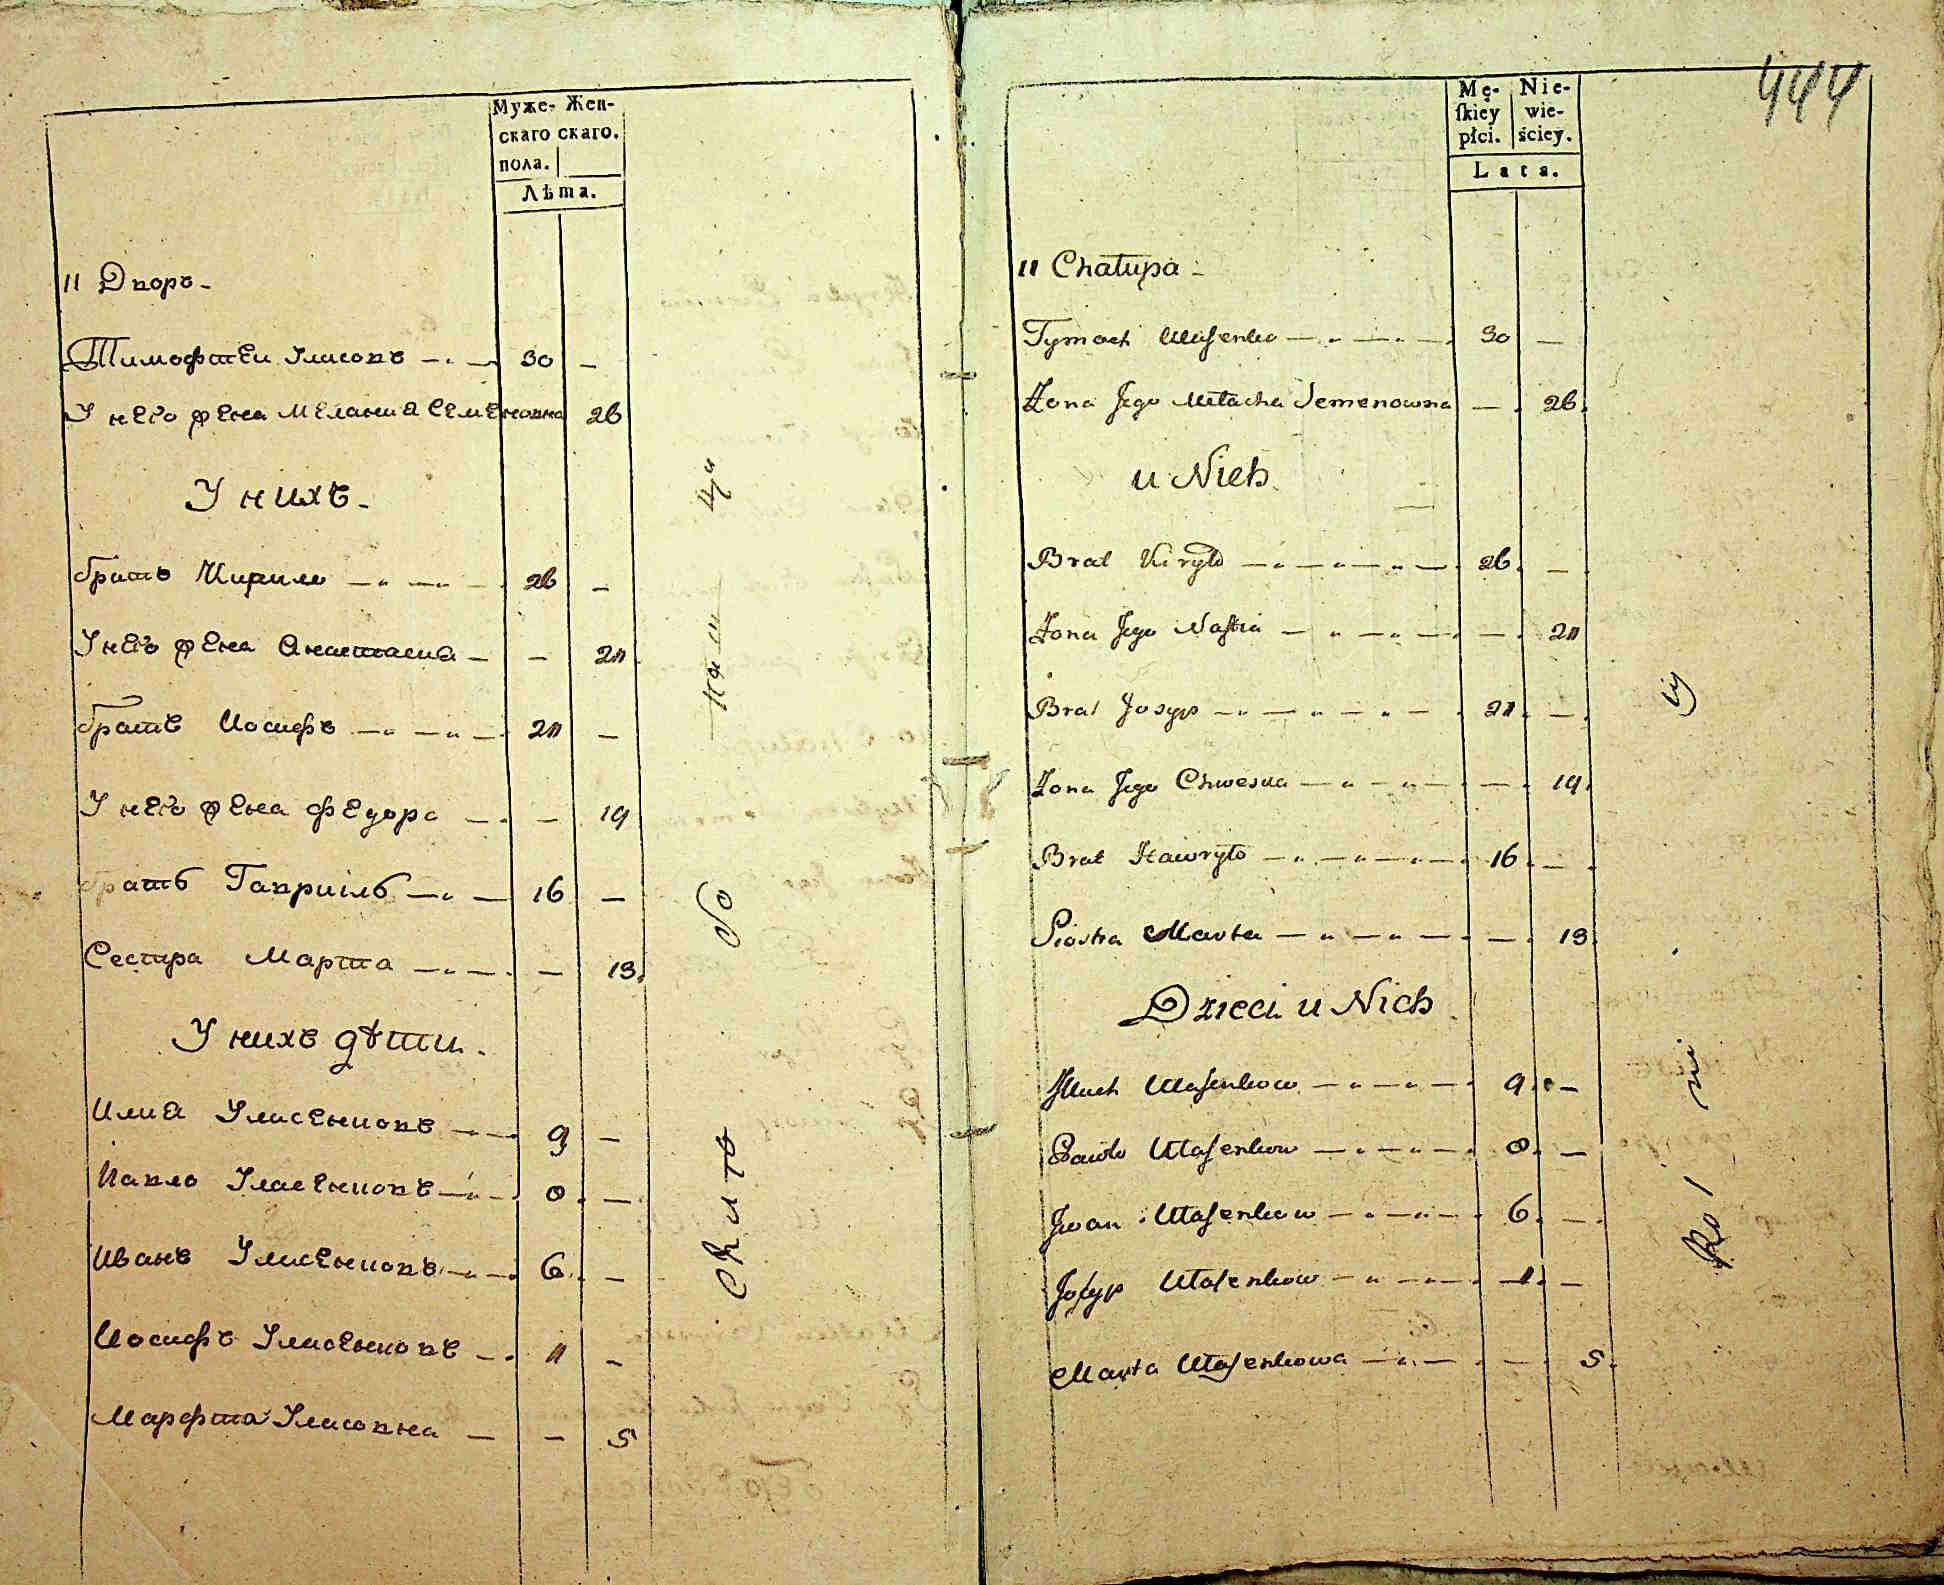 Муже- Жен-
скаго скаго.
пола.
Лѣта.
11 Дворъ -
Тимофтеи Уласовъ 30 -
У него жена Мелания Семеновна 26
У нихъ -
братъ Кирило 26 -
У него жена Анастасия - 20
братъ Иосифъ 20 -
У него жена Федора - 19
братъ Гавриилъ 16 -
Сестра Марта - 13
У нихъ дѣти.
Илиа Уласенковъ 9 -
Павло Уласенковъ 8 -
Иванъ Уласенковъ 6 -
Иосифъ Уласенковъ 1 -
Марфта Уласовна - 5
444
Mę- Nie-
ſkiey wie-
płci. ściey.
Lata.
11 Chałupa -
Tymoch Ułasenko 30 -
Żona Jego Małacha Semenowna - 26
u Nich
Brat Kiryło 26 -
Żona Jego Nastia - 20
Brat Josyp 20 -
Żona Jego Chweska - 19
Brat Hawryło 16 -
Siostra Marta - 13
Dzieci u Nich
Illach Ułasenkow 9 -
Pawło Ułasenkow 8 -
Jwan Ułasenkow 6 -
Josyp Ułasenkow 1 -
Marta Ułasenkowa - 5